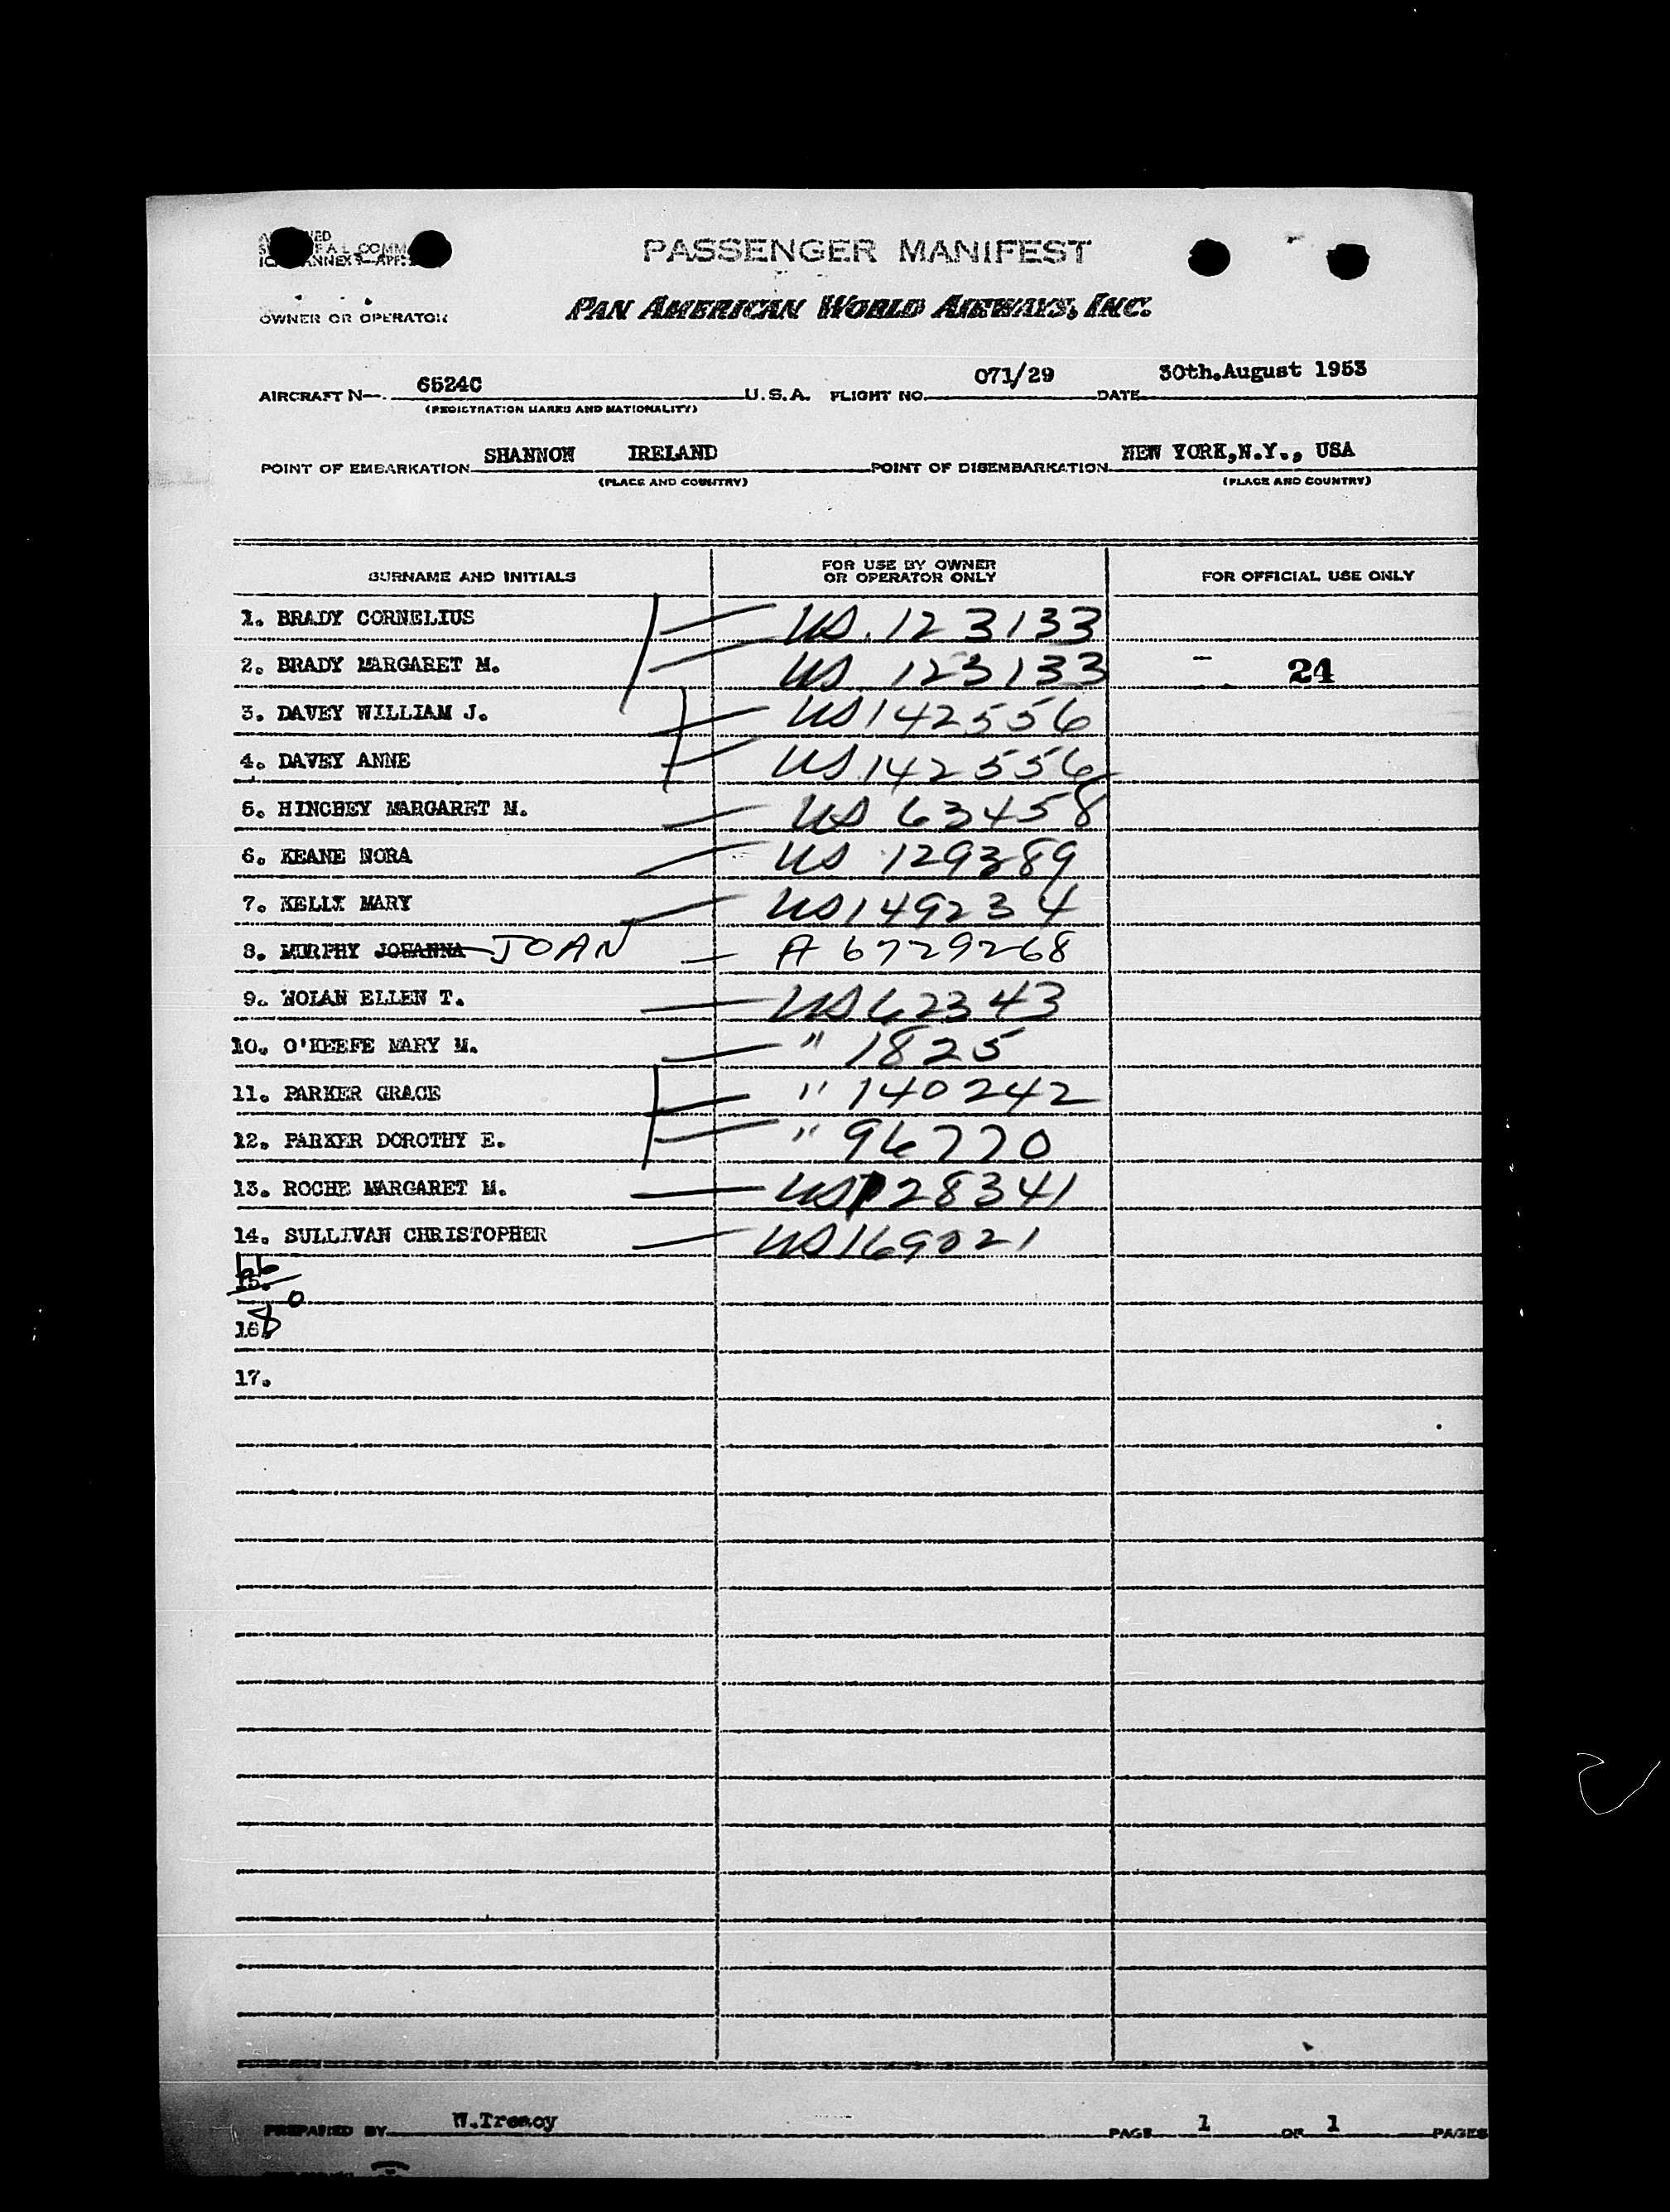 PASSENGER MANIFEST
OWNER OR OPERATOR PAN AMERICAN WORLD AIRWAYS, INC.
AIRCRAFT N 6524C U.S.A. FLIGHT NO. 071/29 DATE 30th.August 1953
(REGISTRATION MARKS AND NATIONALITY)
POINT OF EMBARKATION SHANNON IRELAND POINT OF DISEMBARKATION NEW YORK,N.Y., USA
(PLACE AND COUNTRY) (PLACE AND COUNTRY)
SURNAME AND INITIALS FOR USE BY OWNER OR OPERATOR ONLY FOR OFFICIAL USE ONLY
1. BRADY CORNELIUS US. 123133
2. BRADY MARGARET M. US 123133 24
3. DAVEY WILLIAM J. US 142556
4. DAVEY ANNE US 142556
5. HINCHEY MARGARET M. US 63458
6. KEANE NORA US 129389
7. KELLY MARY US 149234
8. MURPHY JOHANNA JOAN A 6729268
9. NOLAN ELLEN T. US 62343
10. O'KEEFE MARY M. " 1825
11. PARKER GRACE " 140242
12. PARKER DOROTHY E. " 96770
13. ROCHE MARGARET M. US 128341
14. SULLIVAN CHRISTOPHER US 169021
15.
16.
17.
PREPARED BY W.Treacy PAGE 1 OF 1 PAGES